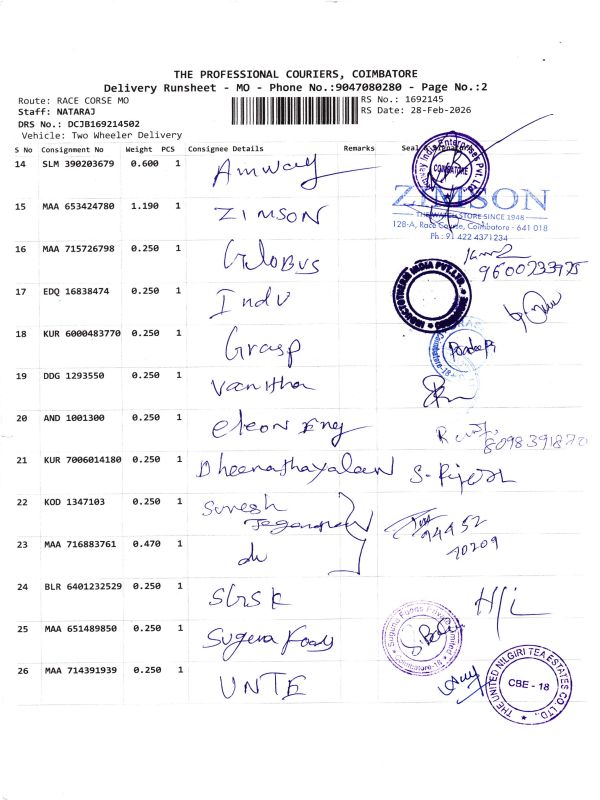 THE PROFESSIONAL COURIERS, COIMBATORE
Delivery Runsheet - MO - Phone No.:9047080280 - Page No.:2
Route: RACE CORSE MO
RS No.: 1692145
Staff: NATARAJ
RS Date: 28-Feb-2026
DRS No.: DCJB169214502
Vehicle: Two Wheeler Delivery
S No Consignment No Weight PCS Consignee Details Remarks
14 SLM 390203679 0.600 1 Amway
COIMBATORE
ZIMSON
THE WATCH STORE SINCE 1948
128-A, Race Course, Coimbatore - 641 018
Ph : 91 422 4371234
15 MAA 653424780 1.190 1 ZIMSON
16 MAA 715726798 0.250 1 Globus
9600233725
17 EDQ 16838474 0.250 1 Indu
18 KUR 6000483770 0.250 1 Grasp
Pradeep
19 DDG 1293550 0.250 1 Vanitha
20 AND 1001300 0.250 1 eleon Eng
21 KUR 7006014180 0.250 1 Dheenathayalan
22 KOD 1347103 0.250 1 Suresh
Jeganathan
94452
70209
23 MAA 716883761 0.470 1 do
24 BLR 6401232529 0.250 1 SGSK
H/L
25 MAA 651489850 0.250 1 Suguna Foods
Suguna Foods Private Limited
Coimbatore-18
26 MAA 714391939 0.250 1 UNTE
THE UNITED NILGIRI TEA ESTATES CO. LTD.,
CBE - 18